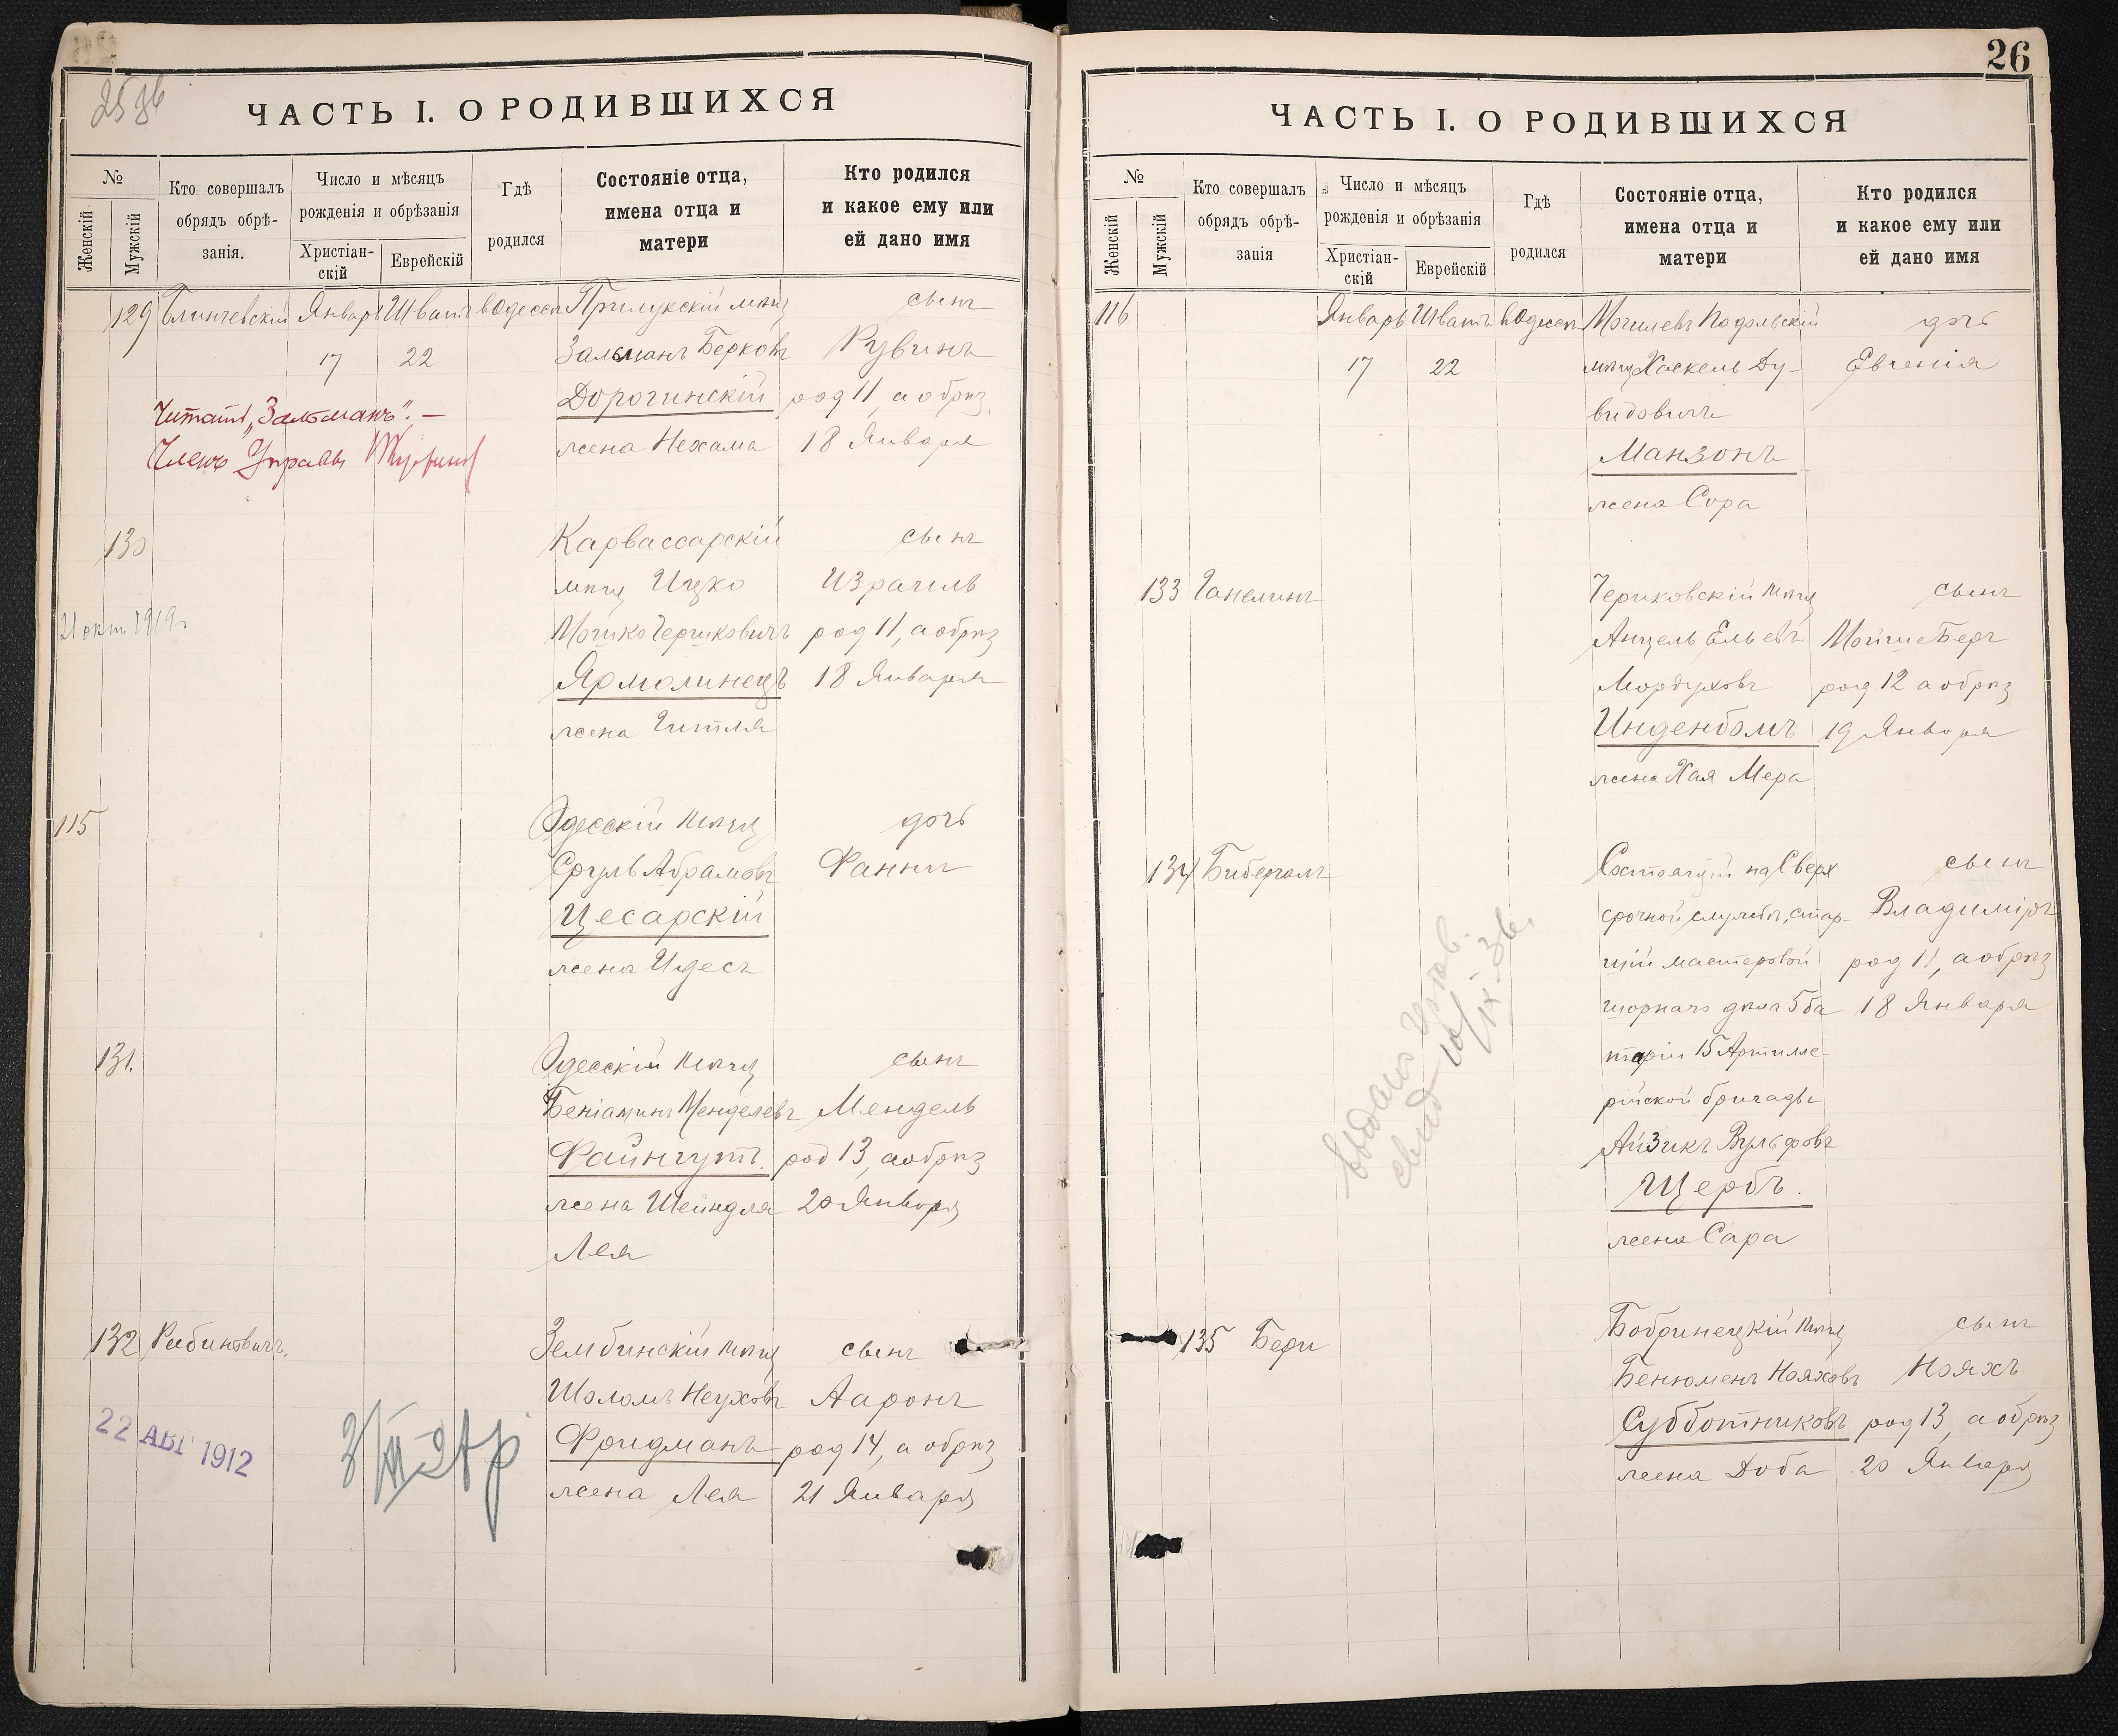 25 зв
ЧАСТЬ I. О РОДИВШИХСЯ
№
Женскій
Мужскій
Кто совершалъ
обрядъ обрѣ-
занія.
Число и мѣсяцъ
рожденія и обрѣзанія
Христіан-
скій
Еврейскій
Гдѣ
родился
Состояніе отца,
имена отца и
матери
Кто родился
и какое ему или
ей дано имя
129 Блинчевскій Январь Шватъ в Одессѣ Прилукскій мѣщ сынъ
17 22 Зальманъ Берковъ Рувинъ
Дорогинскій род 11, а обрѣз.
жена Нехама 18 Января
Читать „Зальманъ". —
Членъ Управы
130 Карвассарскій сынъ
мѣщ Ицко Израиль
21 окт. 1919г
Мошко Гершковичъ род 11, а обрѣз
Ярмолинецъ 18 Января
жена Гитля
115 Одесскій мѣщ дочь
Сруль Абрамовъ Фанни
Цесарскій
жена Идесъ
131. Одесскій мѣщ сынъ
Беніаминъ Менделевъ Мендель
Файнгутъ. род 13, а обрѣз
жена Шейндля 20 Января
Лея
132 Рабиновичъ. Зембинскій мѣщ сынъ
Шоломъ Неуховъ Ааронъ
22 АВГ 1912
Фридманъ род 14, а обрѣз
жена Лея 21 Января
26
ЧАСТЬ I. О РОДИВШИХСЯ
№
Женскій
Мужскій
Кто совершалъ
обрядъ обрѣ-
занія
Число и мѣсяцъ
рожденія и обрѣзанія
Христіан-
скій
Еврейскій
Гдѣ
родился
Состояніе отца,
имена отца и
матери
Кто родился
и какое ему или
ей дано имя
116 Январь Шватъ в Одессѣ Могилевъ Подольскій дочь
17 22 мѣщ Хаскель Ду- Евгенія
видовичъ
Манзонъ
жена Сора
133 Ганелинъ Чериковскій мѣщ сынъ
Анцель Ельевъ Мойше Беръ
Мордуховъ род 12 а обрѣз
Инденбомъ 19 Января
жена Хая Мера
134 Бибергалъ Состоящій на Сверх сынъ
срочной службѣ, стар- Владиміръ
шій мастеровой род 11, а обрѣз
шорнаго дѣла 5 ба 18 Января
таріи 15 Артилле-
рійской бригады
Айзикъ Вульфовъ
Щербъ.
жена Сара
выдано
свид 10/IX-36.
135 Бери Бобринецкій мѣщ сынъ
Бенюменъ Нояховъ Нояхъ
Субботниковъ род 13, а обрѣз
жена Доба 20 Января